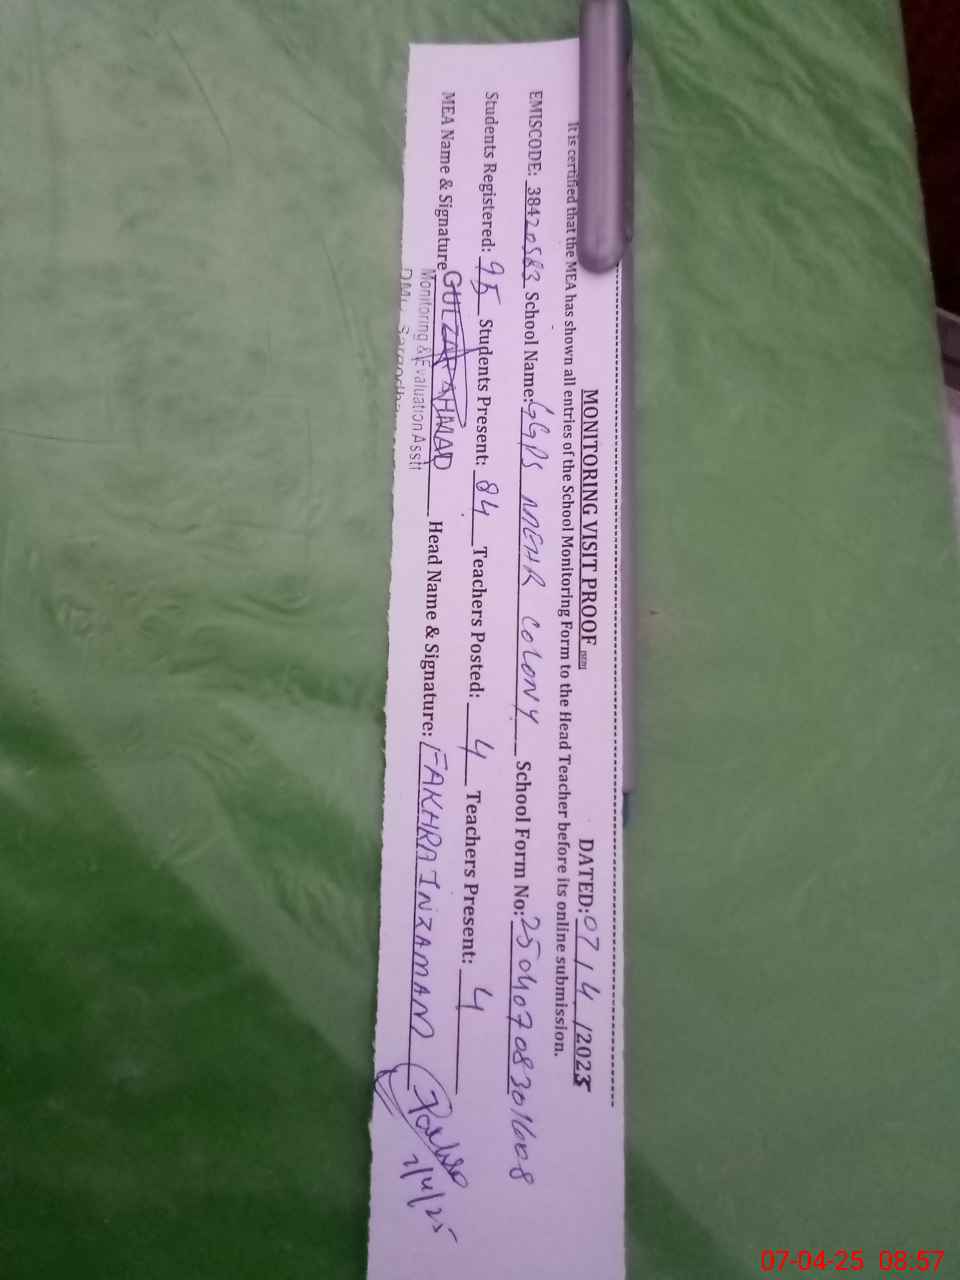 MONITORING VISIT PROOF DATED: 07/4/2025
It is certified that the MEA has shown all entries of the School Monitoring Form to the Head Teacher before its online submission.
EMISCODE: 38420583 School Name: GGPS MEHR COLONY School Form No: 25040708301608
Students Registered: 95 Students Present: 84 Teachers Posted: 4 Teachers Present: 4
MEA Name & Signature GULZAR AHMAD Head Name & Signature: FAKHRA INZAMAM
Monitoring & Evaluation Asstt 7/4/25
DMU Sargodha
07-04-25 08:57